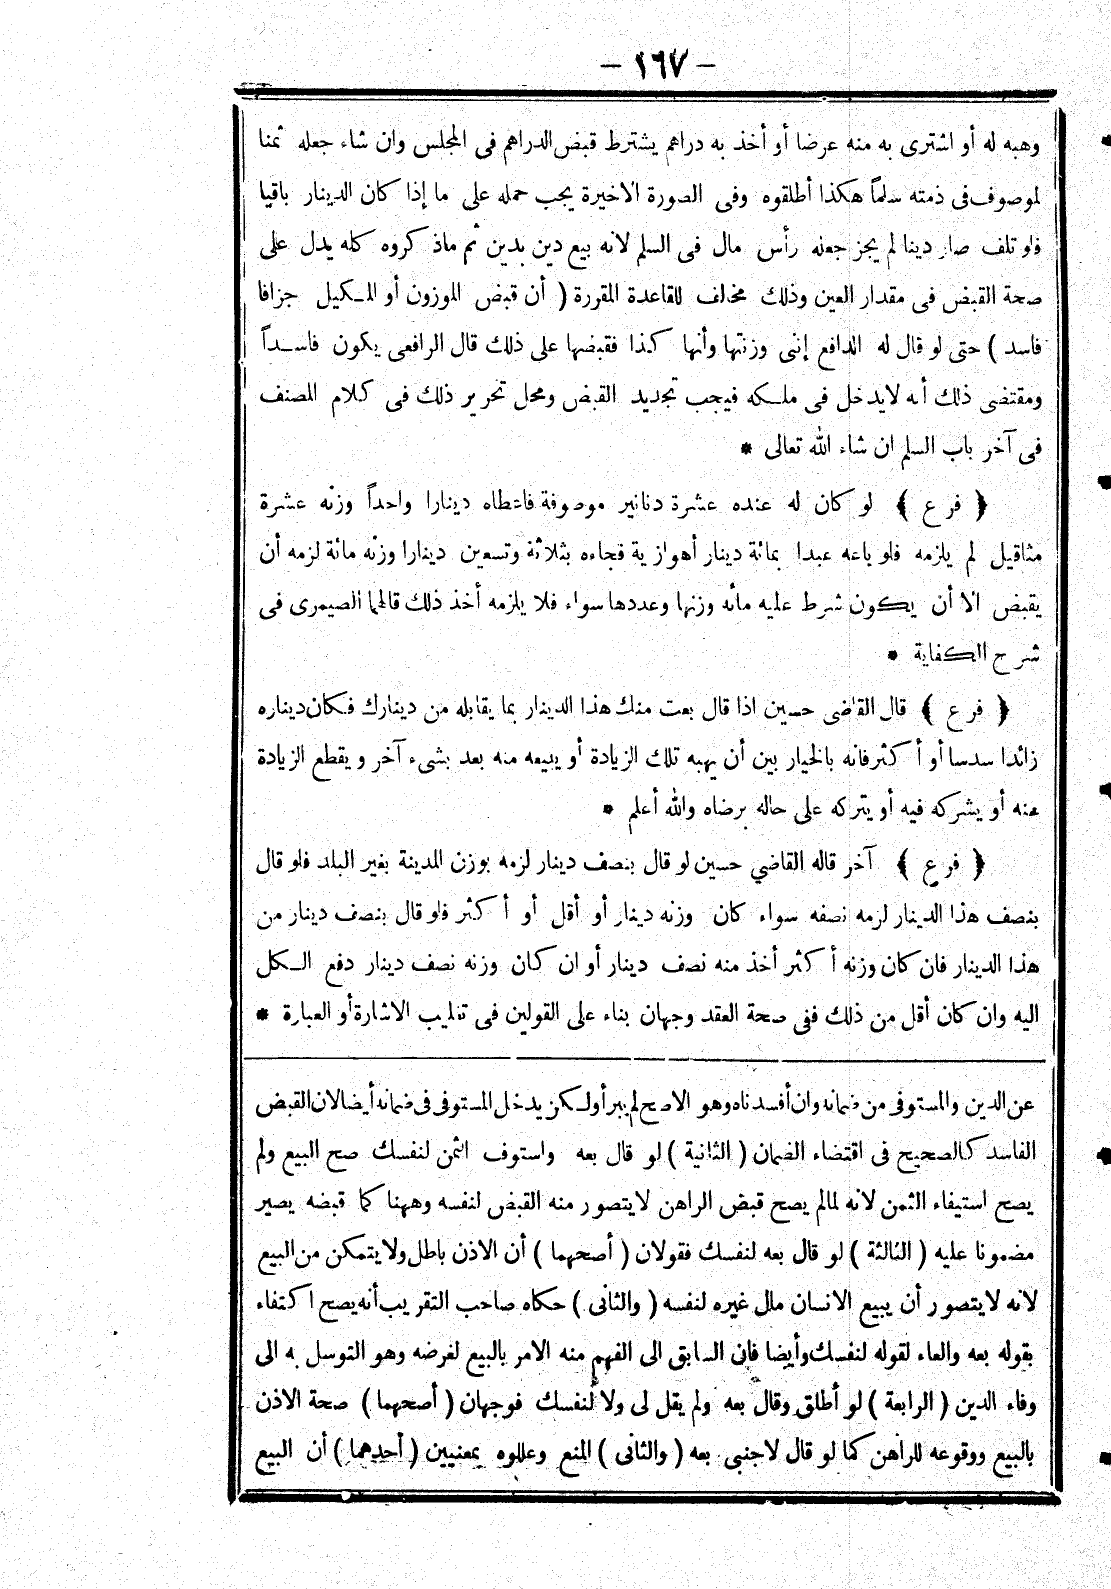 – ١٦٧ –
وهبه له أو اشترى به منه عرضا أو أخذ به دراهم يشترط قبض الدراهم فى المجلس وان شاء جعله ثمنا
لموصوف فى ذمته سلماً هكذا أطلقوه وفى الصورة الاخيرة يجب حمله على ما إذا كان الدينار باقيا
فلو تلف صار دينا لم يجز جعله رأس مال فى السلم لانه بيع دين بدين ثم ماذ كروه كله يدل على
صحة القبض فى مقدار العين وذلك مخالف للقاعدة المقررة ( أن قبض الموزون أو المكيل جزافا
فاسد ) حتى لو قال له الدافع إننى وزنتها وأنها كذا فقبضها على ذلك قال الرافعى يكون فاسداً
ومقتضى ذلك أنه لايدخل فى ملكه فيجب تجديد القبض ومحل تحرير ذلك فى كلام المصنف
فى آخر باب السلم ان شاء الله تعالى *
﴿ فرع ﴾ لو كان له عنده عشرة دنانير موصوفة فاعطاه دينارا واحداً وزنه عشرة
مثاقيل لم يلزمه فلو باعه عبدا بمائة دينار أهوازية فجاءه بثلاثة وتسعين دينارا وزنه مائة لزمه أن
يقبض الا أن يكون شرط عليه مائه وزنها وعددها سواء فلا يلزمه أخذ ذلك قالهما الصيمرى فى
شرح الكفاية *
﴿ فرع ﴾ قال القاضى حسين اذا قال بعت منك هذا الدينار بما يقابله من دينارك فكان ديناره
زائدا سدسا أو أكثر فانه بالخيار بين أن يهبه تلك الزيادة أو يبيعه منه بعد بشىء آخر ويقطع الزيادة
منه أو يشركه فيه أو يتركه على حاله برضاه والله أعلم *
﴿ فرع ﴾ آخر قاله القاضي حسين لو قال بنصف دينار لزمه بوزن المدينة بغير البلد فلو قال
بنصف هذا الدينار لزمه نصفه سواء كان وزنه دينار أو أقل أو أكثر فلو قال بنصف دينار من
هذا الدينار فان كان وزنه أكثر أخذ منه نصف دينار أو ان كان وزنه نصف دينار دفع الكل
اليه وان كان أقل من ذلك ففى صحة العقد وجهان بناء على القولين فى تغليب الاشارة أو العبارة *
عن الدين والمستوفى من ضمانه وان أفسدناه وهو الاصح لم يبرأ ولكن يدخل المستوفى فى ضمانه أيضا لان القبض
الفاسد كالصحيح فى اقتضاء الضمان ( الثانية ) لو قال بعه واستوف الثمن لنفسك صح البيع ولم
يصح استيفاء الثمن لانه لمالم يصح قبض الراهن لايتصور منه القبض لنفسه وههنا كما قبضه يصير
مضمونا عليه ( الثالثة ) لو قال بعه لنفسك فقولان ( أصحهما ) أن الاذن باطل ولا يتمكن من البيع
لانه لايتصور أن يبيع الانسان مال غيره لنفسه ( والثانى ) حكاه صاحب التقريب أنه يصح اكتفاء
بقوله بعه والغاء لقوله لنفسك وأيضا فان السابق الى الفهم منه الامر بالبيع لغرضه وهو التوسل به الى
وفاء الدين ( الرابعة ) لو أطلق وقال بعه ولم يقل لى ولا لنفسك فوجهان ( أصحهما ) صحة الاذن
بالبيع ووقوعه للراهن كما لو قال لاجنبى بعه ( والثانى ) المنع وعللوه بمعنيين ( أحدهما ) أن البيع